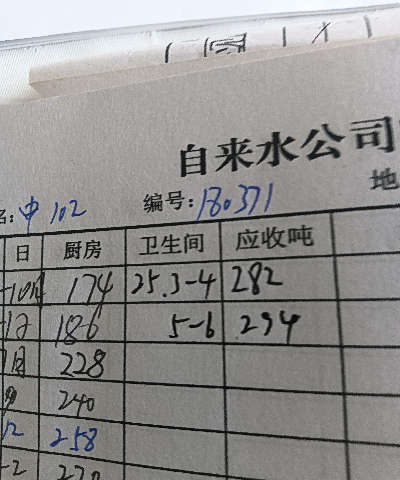 自来水公司
名:中102 编号:180371 地
日 厨房 卫生间 应收吨
10月 174 25.3-4 282
186 5-6 294
月 228
240
12 258
-2 270